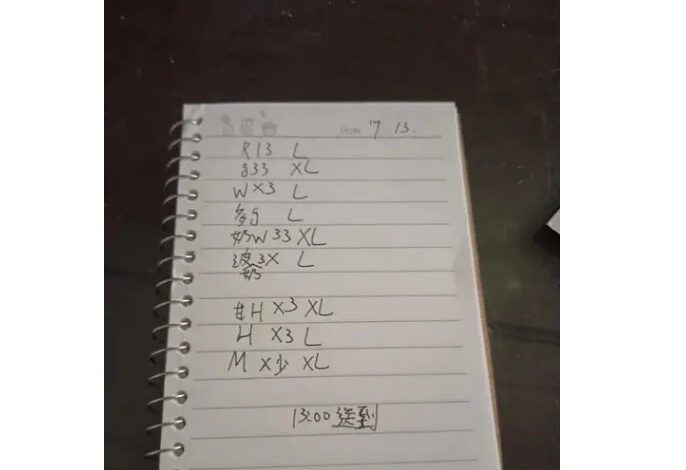 Date 7 13
R13 L
g33 XL
W X3 L
多g L
奶W33 XL
波3X L
奶
甘H X3 XL
H X3 L
M X少 XL
13:00送到